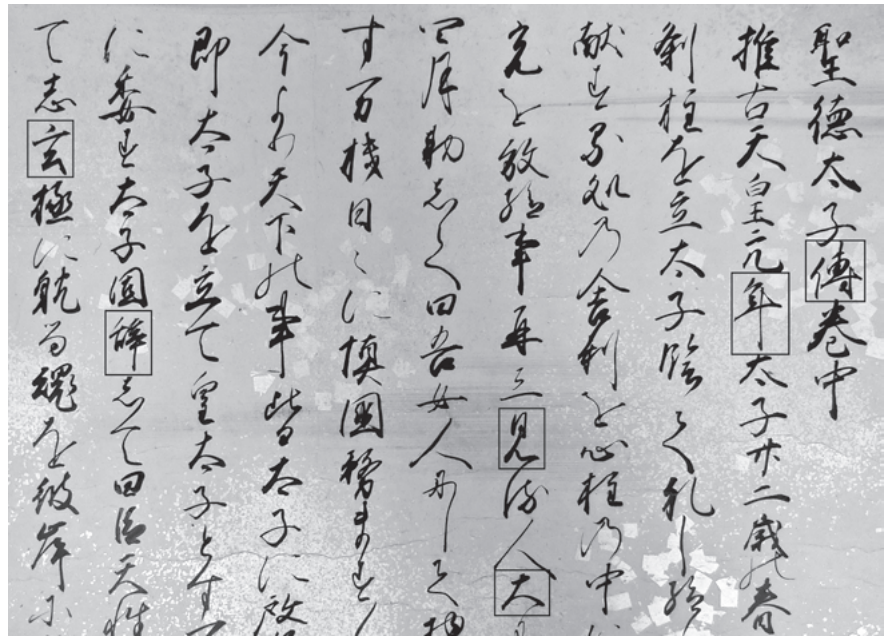 聖徳太子傳巻中
推古天皇元年太子廿二歳の春
刹柱を立太子臨て礼し給
献する処乃舎利を心柱の中
充を放給事再三見る人大
四月勅して曰吾女人にして
す万機日々に慎國務
今より天下の事此
即太子を立て皇太子とす
に委す太子固辞して曰臣天性
て志玄極に就
を彼岸に